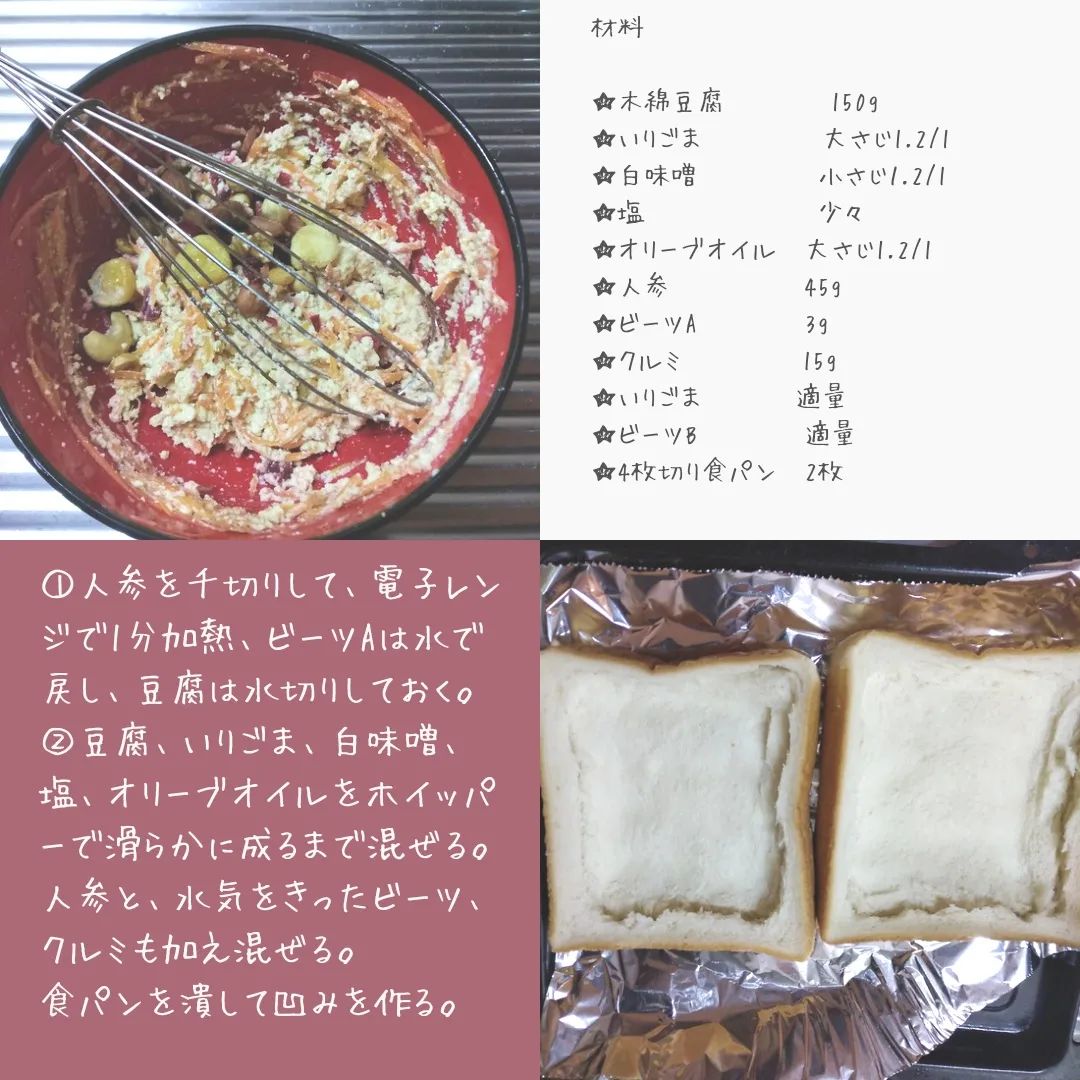 材料
★木綿豆腐 150g
★いりごま 大さじ1.2/1
★白味噌 小さじ1.2/1
★塩 少々
★オリーブオイル 大さじ1.2/1
★人参 45g
★ビーツA 3g
★クルミ 15g
★いりごま 適量
★ビーツB 適量
★4枚切り食パン 2枚
①人参を千切りして、電子レン
ジで1分加熱、ビーツAは水で
戻し、豆腐は水切りしておく。
②豆腐、いりごま、白味噌、
塩、オリーブオイルをホイッパ
ーで滑らかに成るまで混ぜる。
人参と、水気をきったビーツ、
クルミも加え混ぜる。
食パンを潰して凹みを作る。